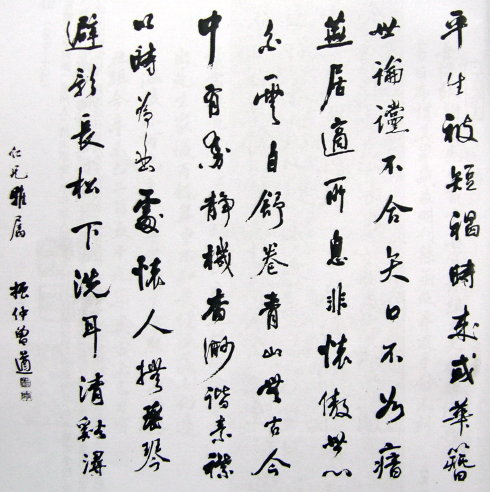 平生被短褐時來或華簪
世論讜不合矢口不如瘖
燕居適所息非懷傲世心
白雲自舒卷青山無古今
中有靜機杳渺諧素襟
以時為出處懷人撫瑤琴
避影長松下洗耳清谿潯
仁兄雅屬 振仲曾遒